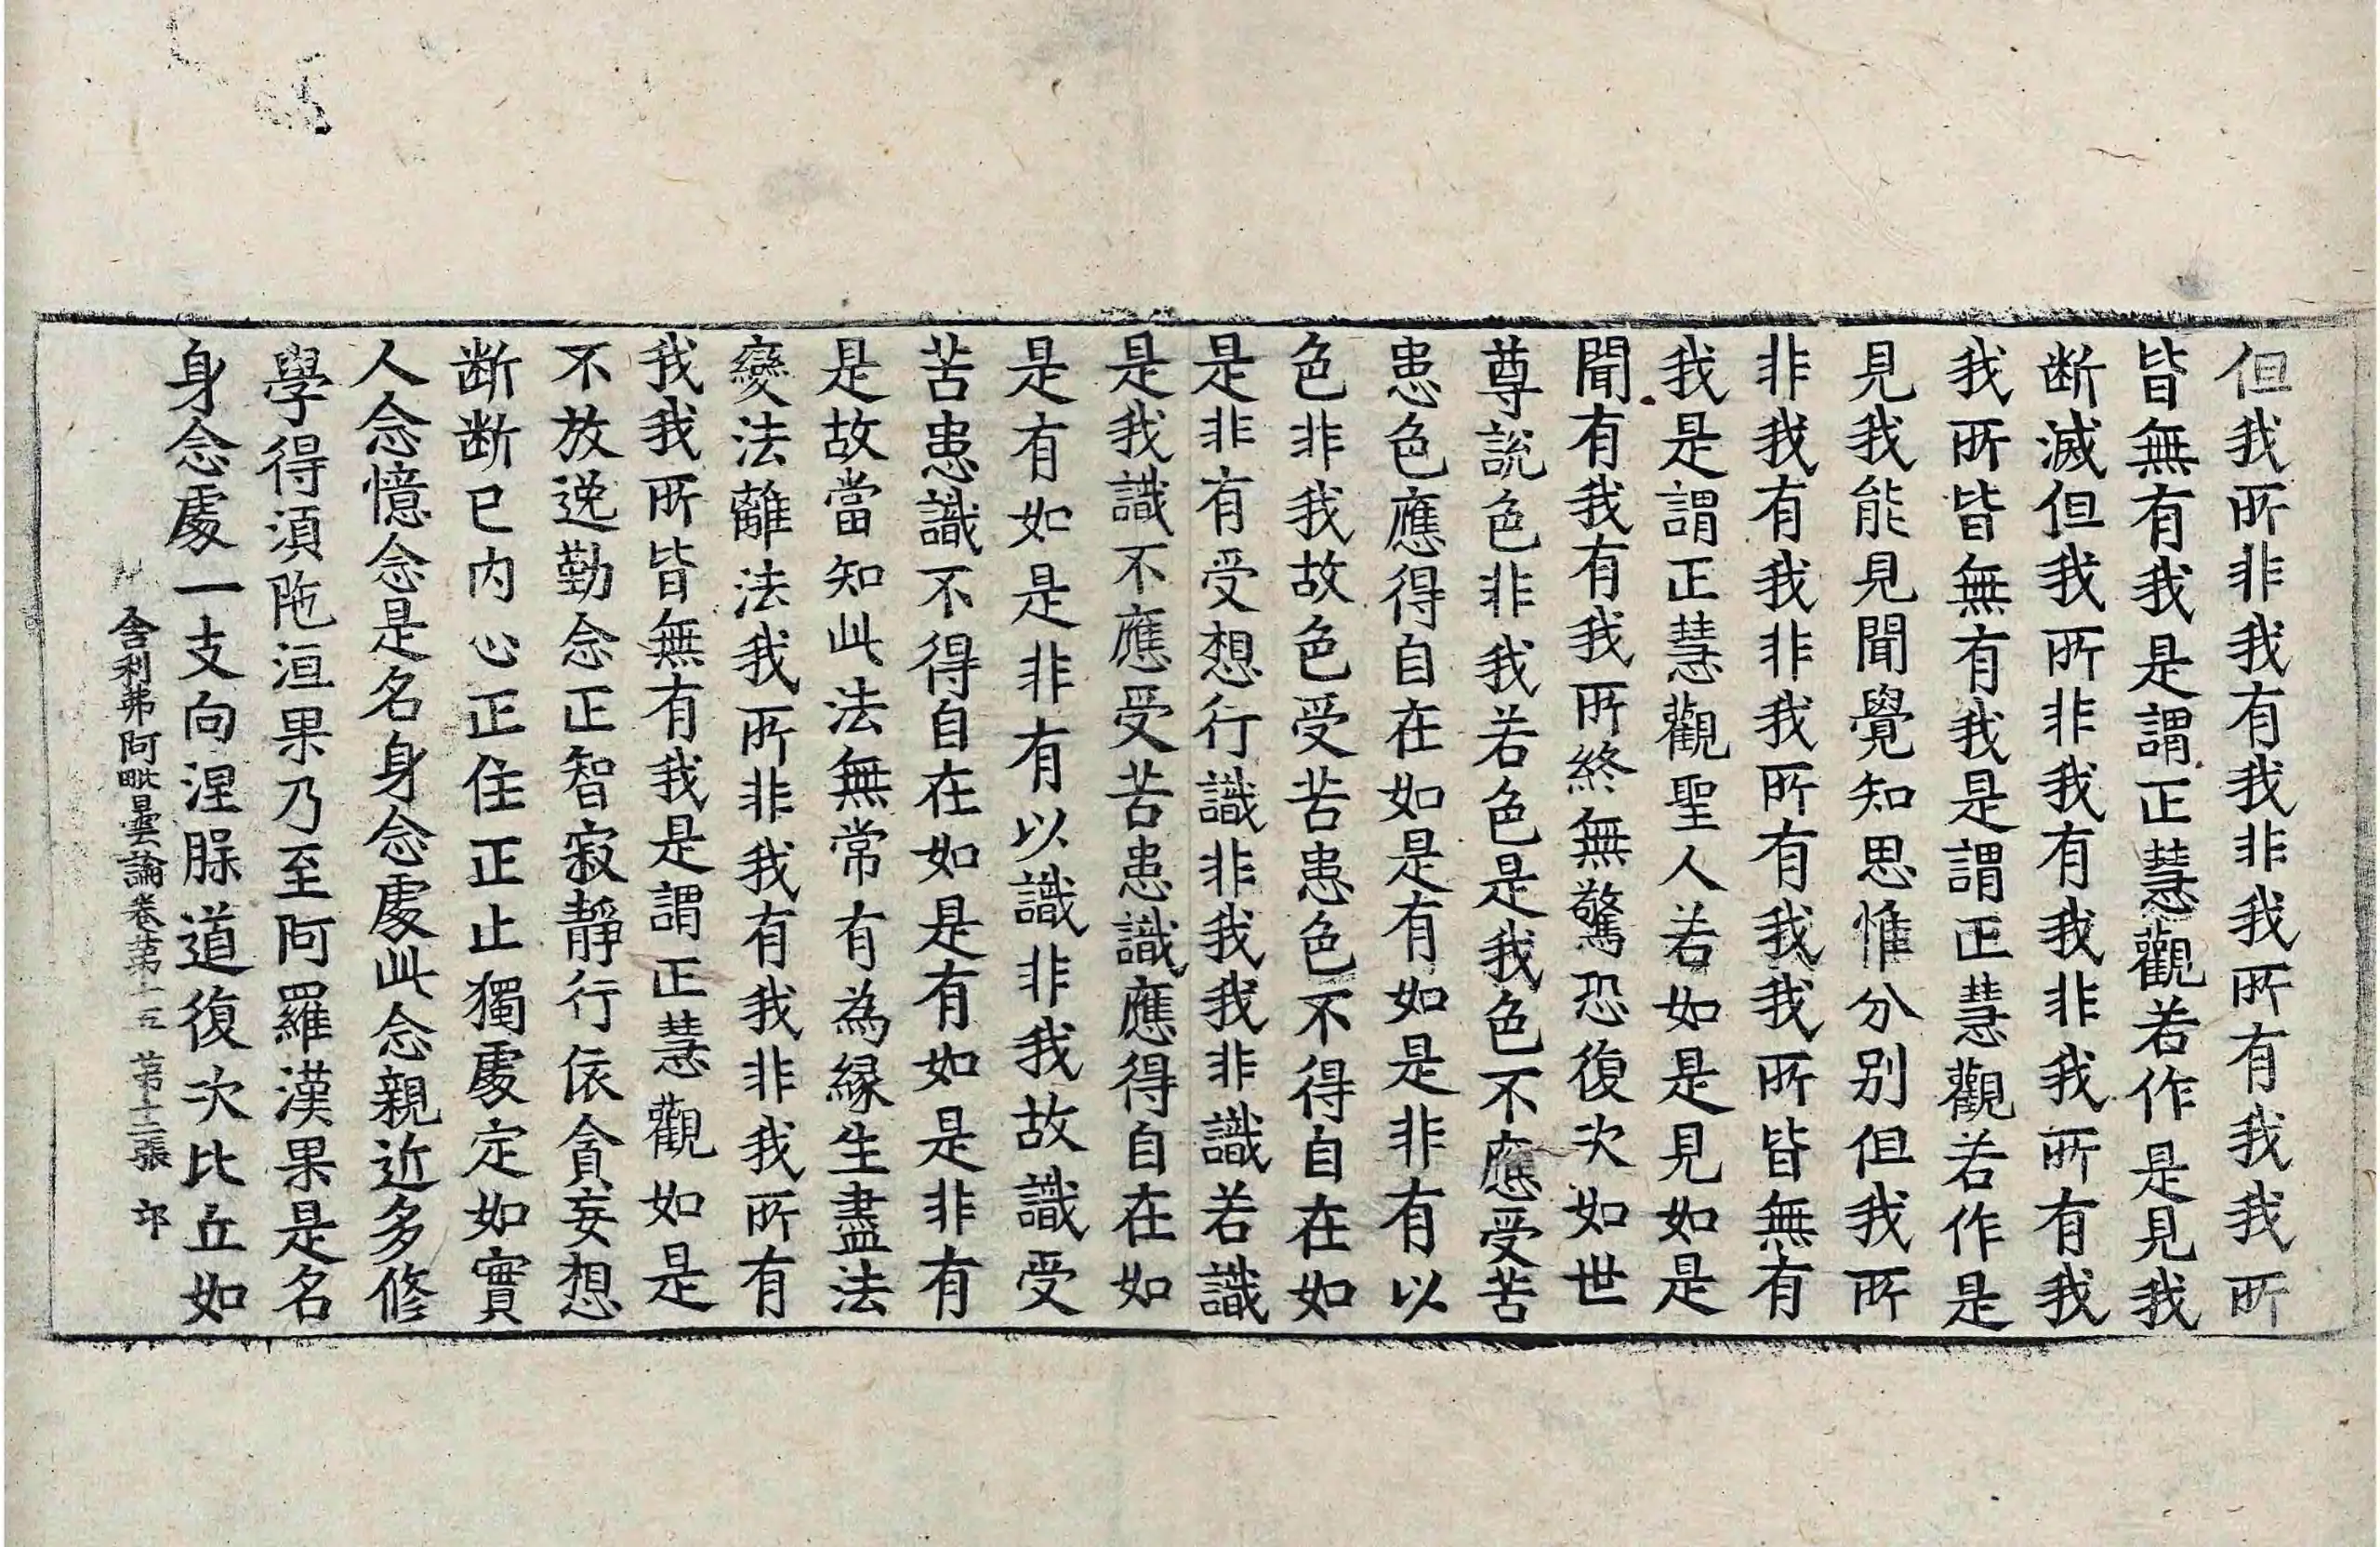 但我所非我有我非我所有我我所
皆無有我是謂正慧觀若作是見我
断滅但我所非我有我非我所有我
我所皆無有我是謂正慧觀若作是
見我能見聞覺知思惟分別但我所
非我有我非我所有我我所皆無有
我是謂正慧觀聖人若如是見如是
聞有我有我所終無驚恐復次如世
尊說色非我若色是我色不應受苦
患色應得自在如是有如是非有以
色非我故色受苦患色不得自在如
是非有受想行識非我我非識若識
是我識不應受苦患識應得自在如
是有如是非有以識非我故識受
苦患識不得自在如是有如是非有
是故當知此法無常有為緣生盡法
變法離法我所非我有我非我所有
我我所皆無有我是謂正慧觀如是
不放逸勤念正智寂靜行依貪妄想
断断已内心正住正止獨處定如實
人念憶念是名身念處此念親近多修
學得湏陁洹果乃至阿羅漢果是名
身念處一支向涅䏶道復次比丘如
舍利弗阿毗曇論卷苐十五 苐十二張 卭